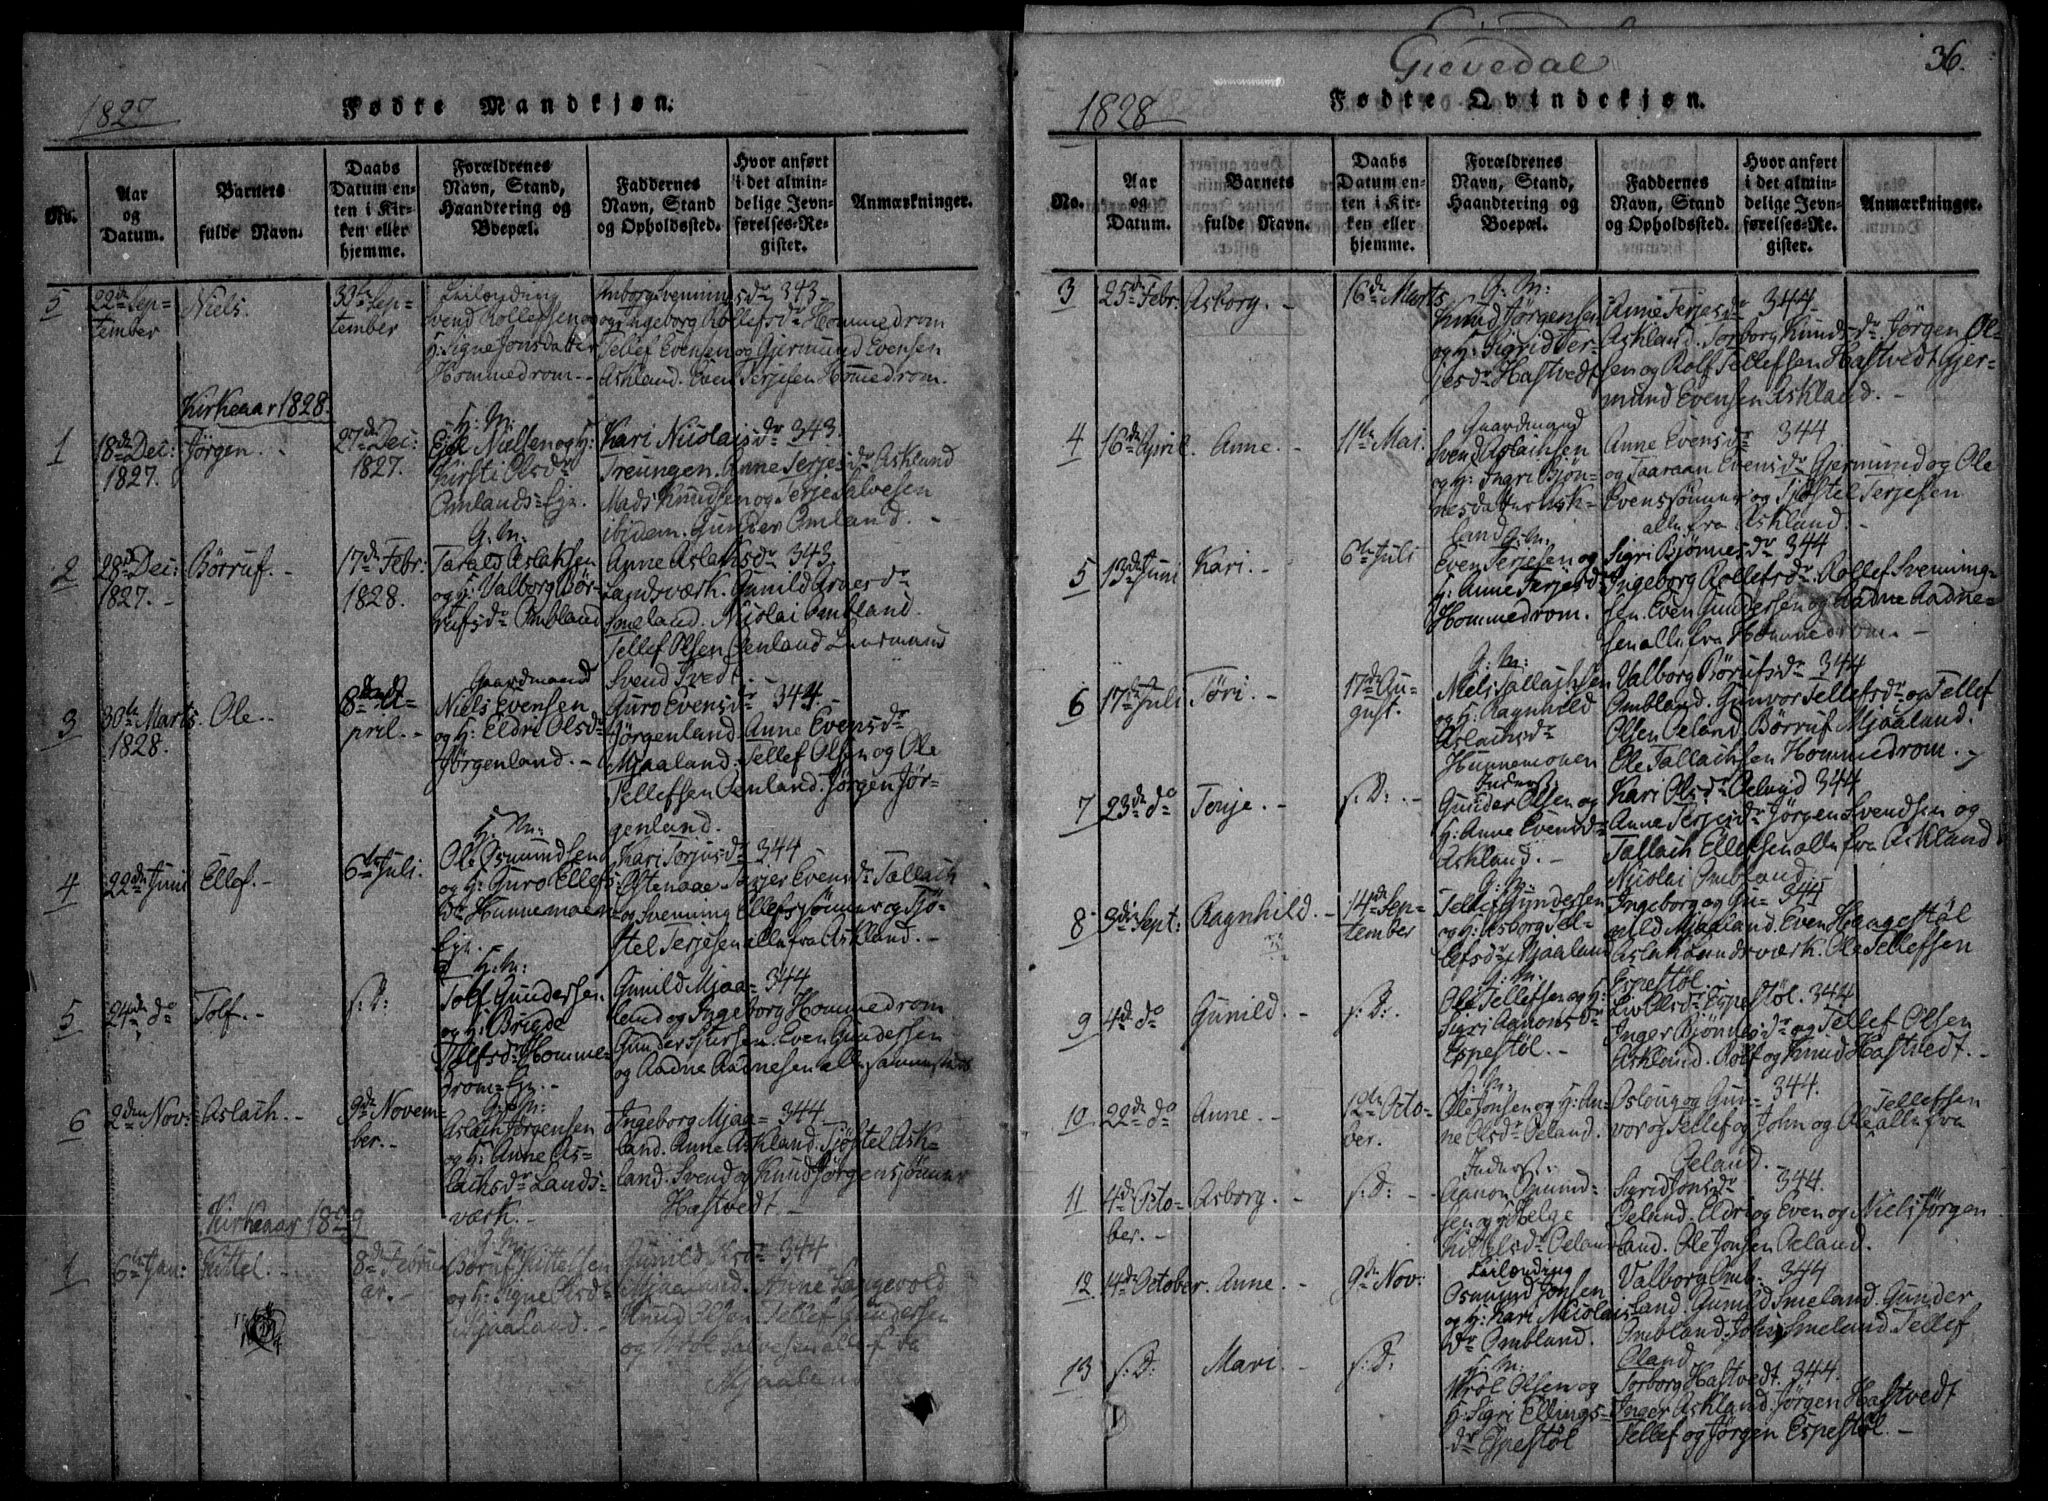 1827
Fødte Mandkjøn.
No.
Aar
og
Datum.
Barnets
fulde Navn.
Daabs
Datum en-
ten i Kir-
ken eller
hjemme.
Forældrenes
Navn, Stand,
Haandtering og
Boepæl.
Faddernes
Navn, Stand
og Opholdssted.
Hvor anført
i det almin-
delige Jevn-
førelses-Re-
gister.
Anmærkninger.
5
22de Sep-
tember
Niels.
30te Sep-
tember
Leilænding
Svend Rollefsen og
H: Signe Jonsdatter
Hommedrom.
Anborg Svenningsdr 343
og Ingeborg Rollefsdr Hommedrom
Tellef Evensen og Gjermund Evensen
Askland. Even Terjesen Hommedrom.
Kirkeaar 1828.
1
18de Dec:
1827.
Jørgen.
27de Dec:
1827.
H: M:
Nielsen og H:
Kirsti Olsdr
Omlands-Eje.
Kari Nicolaisdr 343.
Treungen. Anne Terjesdr Askland
Mads Knudsen og Terje Salvesen
ibidem. Gunder Omland.
2
28de Dec:
1827.
Børruf.
17de Febr:
1828.
G: M:
Tarald Aslaksen
og H: Valborg Bør-
rufsdr Ombland
Anne Aslaksdr 343
Landsværk. Gunild
Smeland. Nicolai Ombland.
Tellef Olsen Oenland
Svend Tvedt.
3
30te Marts
1828.
Ole.
8de A-
pril.
Gaardmand
Niels Evensen
og H: Eldri Olsdr
Jørgenland.
Guro Evensdr 344.
Jørgenland. Anne Evensdr
Mjaaland. Tellef Olsen og Ole
Tellefsen Oenland. Jørgen Jør-
genland.
4
22de Juni
Ellef.
6te Juli.
H: M:
Ole Osmundsen
og H: Guro Ellefs-
dr Hunnemoen
Eje.
Kari Torjusdr 344
Evensdr Tallach
og Svenning Ellefssønner og Tjø-
stel Terjesen alle fra Askland.
5
24de do
Tolf.
s: D:
H: M:
Tolf Gundersen
og H: Brigde
Tolfsdr Homme-
drom-Eje.
Gunild Mjaa- 344
land og Ingeborg Hommedrom
Gunder Sjursen. Even Gundersen
og Aadne Aadnesen alle sammesteds
6
2den Nov:
Aslach.
9de Novem-
ber.
G: M:
Aslach Jørgensen
og H: Anne As-
lachsdr Lands-
værk.
Ingeborg Mjaa- 344
land. Anne Askland. Tjøstel Ask-
land. Svend og Knud Jørgenssønner
Hastvedt.
Kirkeaar 1829
1
6te Jan:
Kittel.
8de Febru
ar.
G: M:
Børuf Kittelsen
og H: Signe Olsdr
Mjaaland.
Gunild Olsdr 344
Mjaaland. Anne Langevold
Knud Olsen. Tellef Gundersen
og Wrol Salvesen alle fra
Mjaaland
Gievedal
36.
1828
Fødte Qvindekjøn.
No.
Aar
og
Datum.
Barnets
fulde Navn.
Daabs
Datum en-
ten i Kir-
ken eller
hjemme.
Forældrenes
Navn, Stand,
Haandtering og
Boepæl.
Faddernes
Navn, Stand
og Opholdssted.
Hvor anført
i det almin-
delige Jevn-
førelses-Re-
gister.
Anmærkninger.
3
25de Febr:
Asborg.
16de Marts
G: M:
Knud Jørgensen
og H: Sigrid Ter-
jesdr Hastvedt
Anne Terjesdr 344
Askland. Torborg Knudsdr Jørgen Ol-
sen og Rolf Tellefsen Hastvedt Gjer-
mund Evensen Askland.
4
16de April.
Anne.
11te Mai.
Gaardmand
Svend Aslachsen
og H: Ingri Bjøn-
nesdatter Ask-
land
Anne Evensdr 344
og Taaraan Evensdr Gjermund og Ole
Evenssønner og Tjøstel Terjesen
alle fra Askland.
5
13de Juni
Kari.
6te Juli
G: M:
Even Terjesen og
H: Anne Terjesdr
Hommedrom.
Sigri Bjønnesdr 344
Ingeborg Rollefsdr. Rollef Svenning-
sen. Even Gundersen og Aadne Aadne-
sen alle fra Hommedrom.
6
17de Juli
Tøri.
17de Au-
gust.
G: M:
Niels Tallachsen
og H: Ragnhild
Aslachsdr
Hunnemoen
Valborg Børufsdr 344
Ombland. Gunvor Tellefsdr og Tellef
Olsen Oeland Børruf Mjaaland.
Ole Tallachsen Hommedrom.
7
23de do
Tonje.
s: D:
Inderst:
Gunder Olsen og
H: Anne Evensdr
Askland.
Kari Olsdr 344
Anne Terjesdr Jørgen Svendsen og
Tallach Ellefsen alle fra Askland
Nicolai Ombland.
8
3die Sept:
Ragnhild.
14de Sep-
tember
G: M:
Tellef Gundersen
og H: Asborg Tel-
lefsdr Mjaaland
Ingeborg og Gu- 344
nild Mjaaland. Even Haagestøl
Aslak Landsværk. Ole Tellefsen
Espestøl
9
4de do
Gunild.
s: D:
G: M:
Ole Tellefsen og H:
Sigri Aanonsdr
Espestøl.
Liv Olsdr Espestøl. 344
Inger Bjønnesdr og Tellef Olsen
Askland. Rolf og Knud Hastvedt.
10
22de do
Anne.
12te Octo-
ber.
G: M:
Ole Jonsen og H: An-
ne Olsdr Oeland.
Osloug og Gun- 344. Tellefsen
vor og Tellef og John og Ole alle fra
Oeland.
11
4de Octo-
ber.
Asborg.
s: D:
Inderst:
Aanon Omund-
sen og Helge
Kittelsdr Oeland
Sigrid Jonsdr 344.
Oeland. Eldri og Even og Niels Jørgen
land. Ole Jonsen Oeland.
12.
4de October.
Anne.
9de Nov:
Leilænding
Osmund Jonsen
og H: Kari Nicolais
dr Ombland.
Valborg Omb- 344
land. Gunild Smeland. Gunder
Ombland. John Smeland. Tellef
Oland
13
s: D:
Mari.
s: D:
H: M:
Wrol Olsen og
H: Sigri Ellings-
dr Espestøl
Torborg Hastvedt. 344.
Inger Askland. Jørgen Hastvedt
Tellef og Jørgen Espestøl.